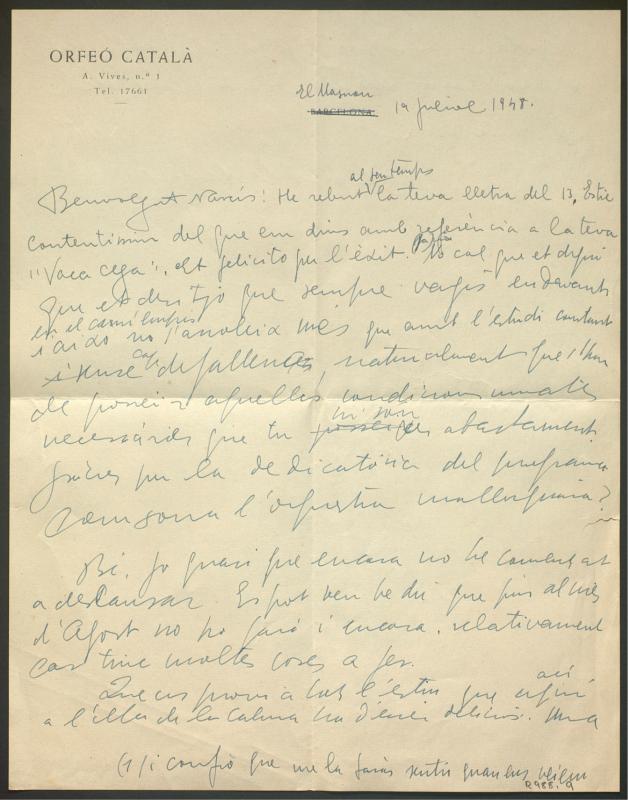 ORFEÓ CATALÀ
A. Vives, n.º 1
Tel. 17661
El Masnou
BARCELONA, 19 juliol 1948.
al seu temps
Benvolgut Narcís: He rebut la teva lletra del 13. Estic
contentíssim del que em dius amb referència a la teva
"Vaca cega", et felicito per l'èxit. No cal que et digui
que et desitjo que sempre vagis endavant
en el camí emprès
i això no s'anoleix més que amb l'estudi constant
i sense cap defallença, naturalment que s'han
de posseir aquelles condicions innates
hi son
necessàries que tu posseeixes abastament.
Gràcies per la dedicatòria del programa
Com sona l'orquestra mallorquina?
Bé. Jo quasi que encara no he començat
a descansar. Es pot ben bé dir que fins al mes
d'Agost no ho faré i encara, relativament
car tinc moltes coses a fer.
Que us provi a tots l'estiu que
així
a l'illa de la calma ha d'ésser deliciós. Una
(1) i confio que me la faràs sentir quan ens vegem
R 988.9